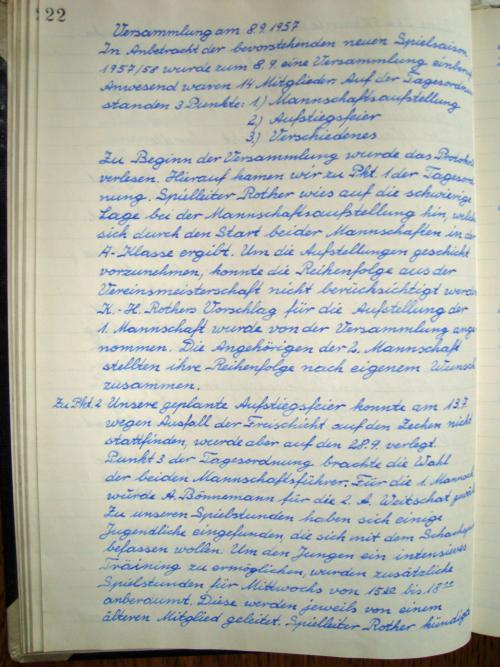 22
Versammlung am 8.9.1957
In Anbetracht der bevorstehenden neuen Spielsaison
1957/58 wurde zum 8.9. eine Versammlung einberu
Anwesend waren 14 Mitglieder. Auf der Tagesordnun
standen 3 Punkte: 1) Mannschaftsaufstellung
2) Aufstiegsfeier
3) Verschiedenes
Zu Beginn der Versammlung wurde das Protoko
verlesen. Hierauf kamen wir zu Pkt. 1 der Tagesord
nung. Spielleiter Rother wies auf die schwierige
Lage bei der Mannschaftsaufstellung hin, welche
sich durch den Start beider Mannschaften in der
A-Klasse ergibt. Um die Aufstellungen geschickt
vorzunehmen, konnte die Reihenfolge aus der
Vereinsmeisterschaft nicht berücksichtigt werden
K.-H. Rothers Vorschlag für die Aufstellung der
1. Mannschaft wurde von der Versammlung ange
nommen. Die Angehörigen der 2. Mannschaft
stellten ihre Reihenfolge nach eigenem Wunsch
zusammen.
Zu Pkt. 2 Unsere geplante Aufstiegsfeier konnte am 13.7.
wegen Ausfall der Freischicht auf den Zechen nicht
stattfinden, wurde aber auf den 28.9. verlegt.
Punkt 3 der Tagesordnung brachte die Wahl
der beiden Mannschaftsführer. Für die 1. Mannsch
würde A. Bönnemann für die 2. A. Weitschat gewä
Zu unseren Spielstunden haben sich einige
Jugendliche eingefunden, die sich mit dem Schachspiel
befassen wollen. Um den Jungen ein intensives
Träining zu ermöglichen, wurden zusätzliche
Spielstunden für Mittwochs von 15 bis 18
anberaumt. Diese werden jeweils von einem
älteren Mitglied geleitet. Spielleiter Rother kündigte